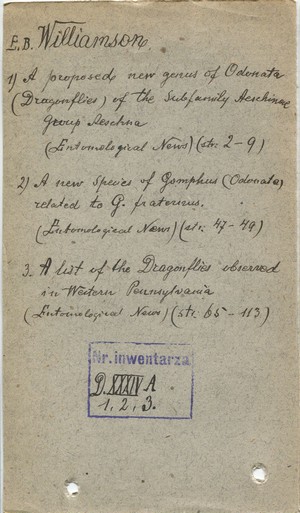 E. B. Williamson
1) A proposed new genus of Odonata
(Dragonflies) of the Subfamily Aeschninae
group Aeschna
(Entomological News) (str. 2-9)
2) A new species of Gomphus (Odonata)
related to G. fraternus.
(Entomological News) (str. 47-49)
3. A list of the Dragonflies observed
in Western Pennsylvania
(Entomological News) (str. 65-113)
Nr. inwentarza
D. XXXIV A
1. 2. 3.